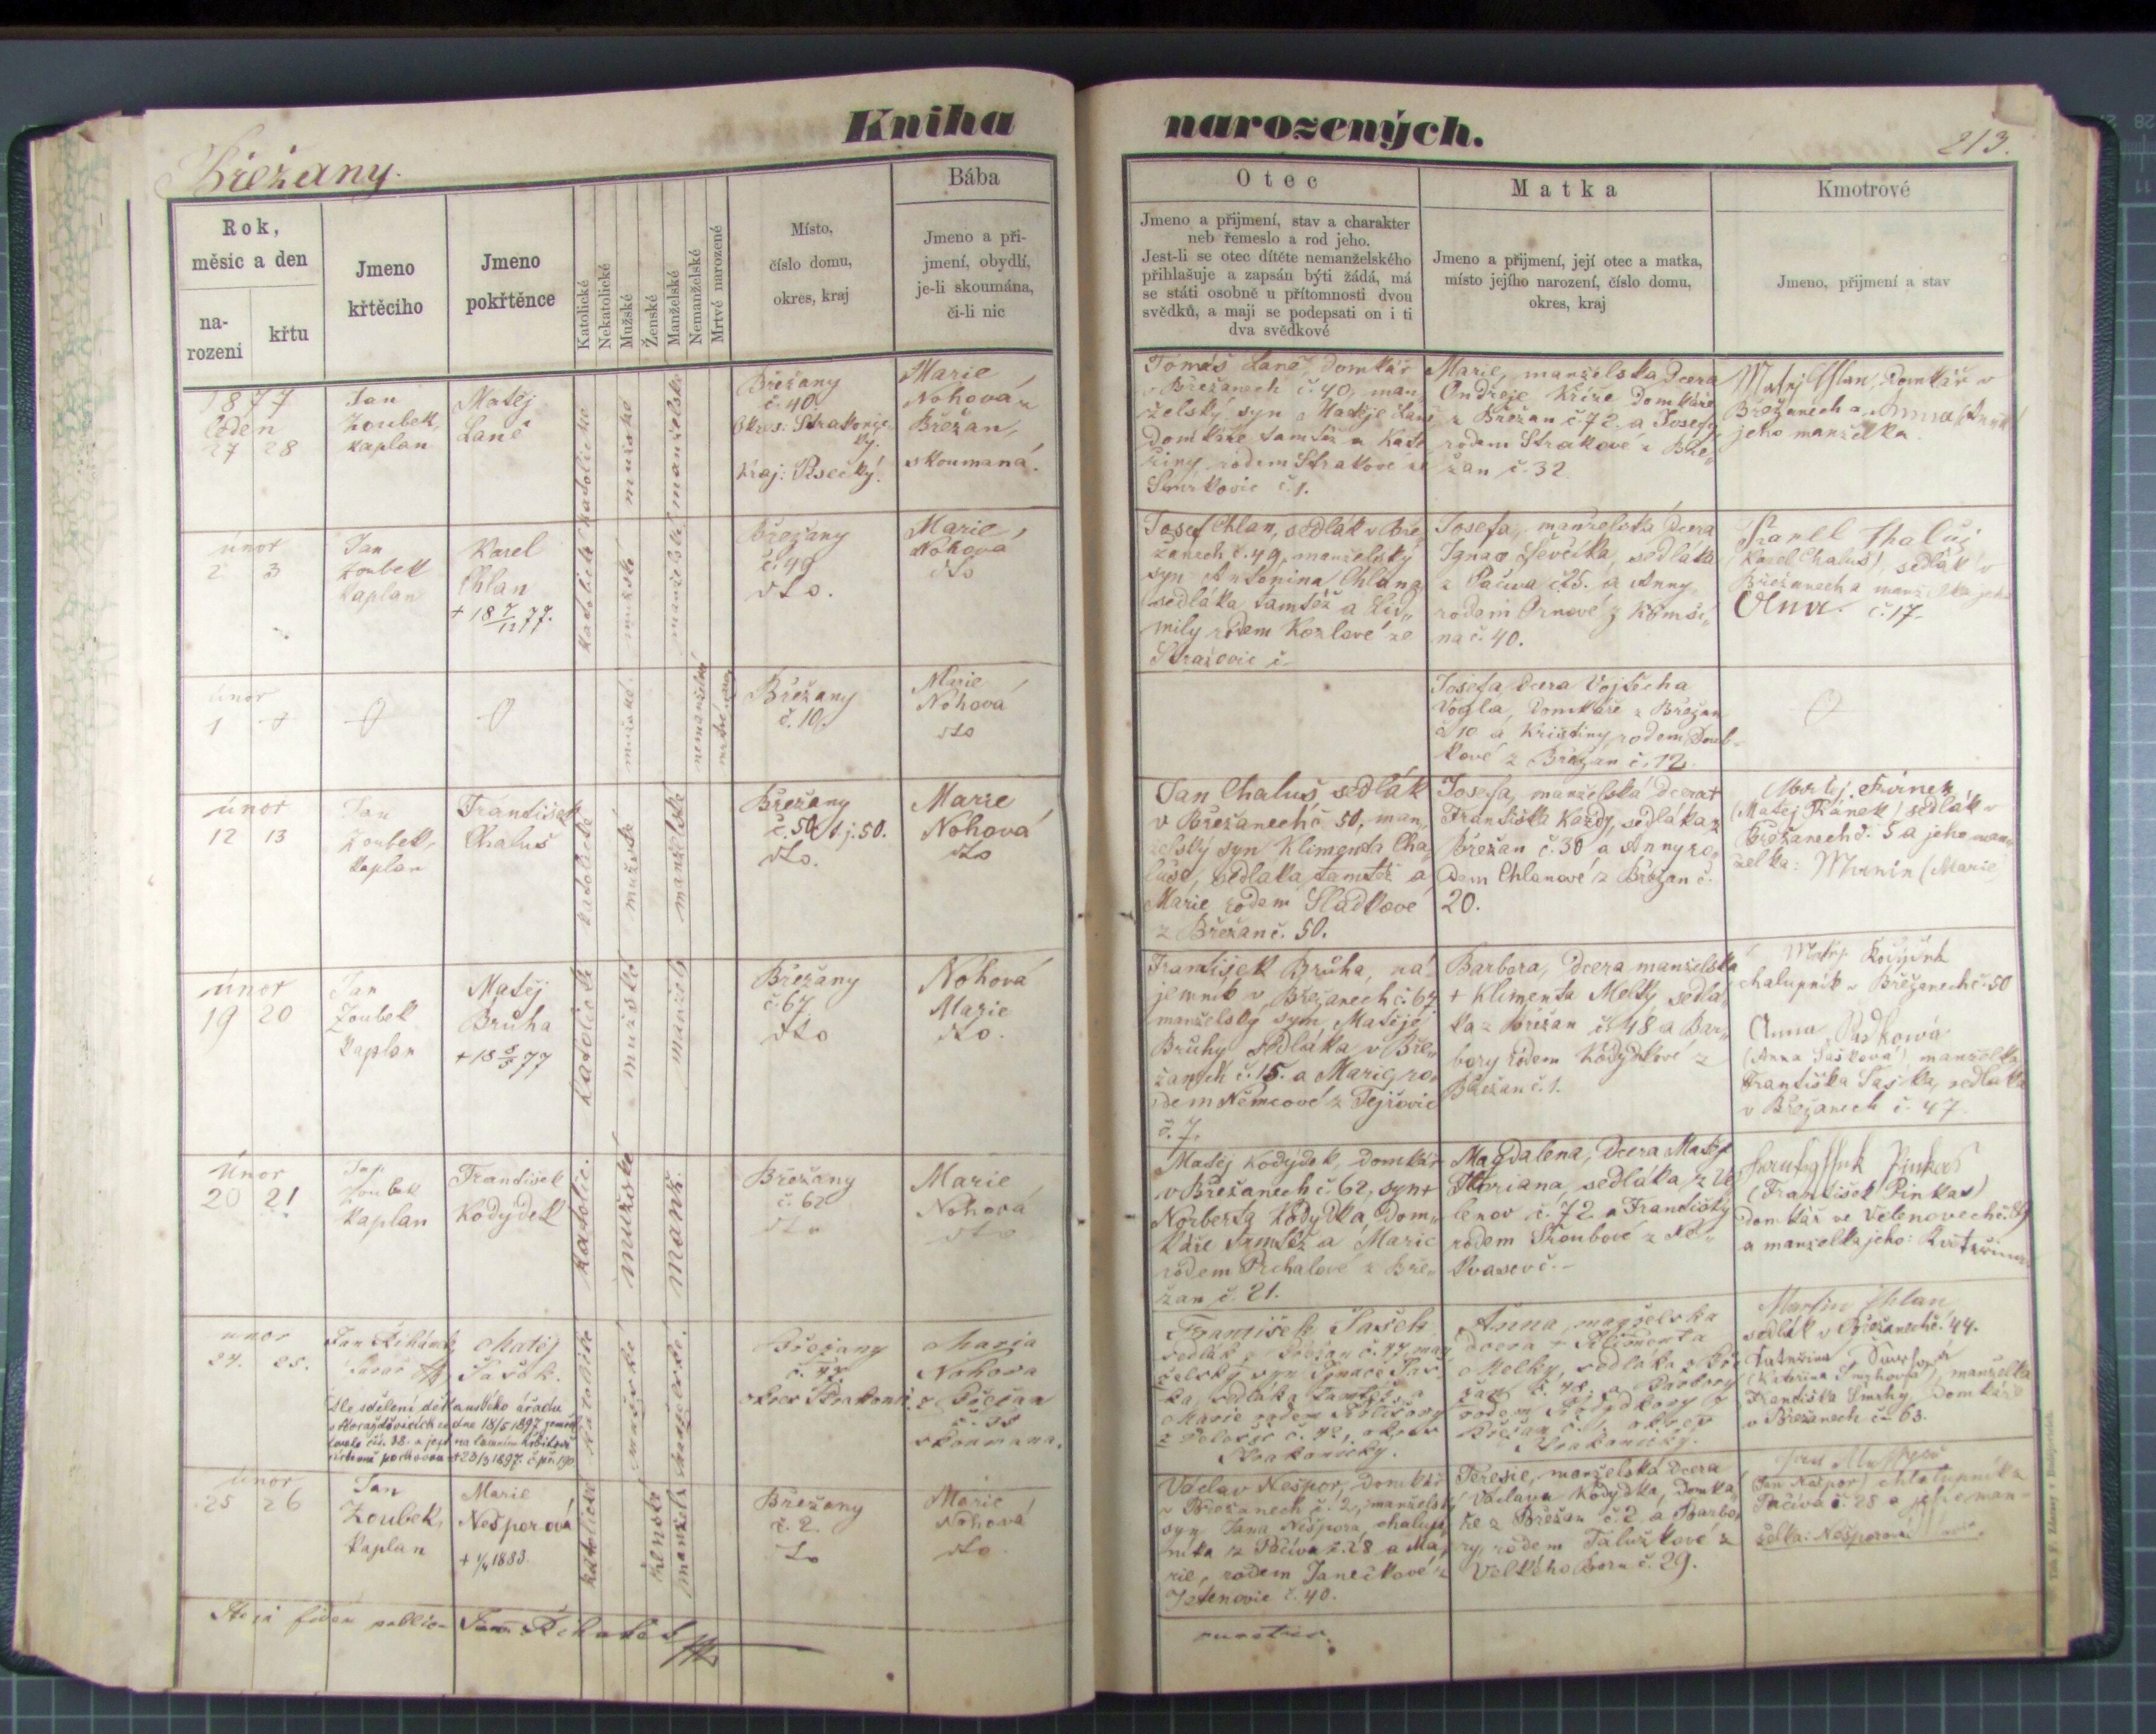 Kniha narozených.
213.
Břežany.
Rok,
měsíc a den
na-
rození
křtu
Jmeno
křtěcího
Jmeno
pokřtěnce
Katolické
Nekatolické
Mužské
Ženské
Manželské
Nemanželské
Mrtvé narozené
Místo,
číslo domu,
okres, kraj
Bába
Jmeno a při-
jmení, obydlí,
je-li skoumána,
či-li nic
Otec
Jmeno a přijmení, stav a charakter
neb řemeslo a rod jeho.
Jest-li se otec dítěte nemanželského
přihlašuje a zapsán býti žádá, má
se státi osobně u přítomnosti dvou
svědků, a mají se podepsati on i ti
dva svědkové
Matka
Jmeno a přijmení, její otec a matka,
místo jejího narození, číslo domu,
okres, kraj
Kmotrové
Jmeno, přijmení a stav
1877
leden
27 28
Jan
Zoubek,
kaplan
Matěj
Laně
katolické
mužské
manželské
Břežany
č. 40.
Okres: Strakonic-
ký.
Kraj: Písecký.
Marie
Nohová z
Břežan,
skoumaná.
Tomáš Laně, domkář
v Břežanech č. 40, man-
želský syn Matěje Laně
domkáře tamtéž a Kate
řiny rodem Strakové ze
Smrkovic č. 1.
Marie, manželská dcera
Ondřeje Kříže domkáře
z Břežan č. 72. a Josefy
rodem Strakové z Bře„
žan č. 32.
Matěj Chlan, domkář v
Břežanech a Anna
jeho manželka.
únor
2 3
Jan
Zoubek
kaplan
Karel
Chlan
+ 18 7/12 77.
katolické
mužské
manželské
Břežany
č. 49
dto.
Marie
Nohová
dto
Josef Chlan, sedlák v Bře„
žanech č. 49, manželský
syn Antonína Chlana
sedláka tamtéž a Lid„
mily rodem Kozlové ze
Stražovic č.
Josefa, manželská dcera
Ignace Ševčíka, sedláka
z Pačiva č. 25. a Anny
rodem Ornové z Komši„
na č. 40.
Karel Chaluš
(Karel Chaluš), sedlák v
Břežanech a manželka jeho
Anna. č. 17.
únor
1
mužské
nemanželské
Břežany
č. 10.
Marie
Nohová
dto
Josefa, dcera Vojtěcha
Vogla, domkáře z Břežan
č. 10 a Kristiny, rodem Doub-
kové z Břežan č. 12.
únor
12 13
Jan
Zoubek,
kaplan
František
Chaluš
katolické
mužské
manželské
Břežany
č. 50 t. j. 50.
dto.
Marie
Nohová
dto
Jan Chaluš sedlák
v Břežanech č. 50, man„
želský syn Klimenta Cha„
luše, sedláka tamtéž a
Marie rodem Sládkové
z Břežan č. 50.
Josefa, manželská dcera +
Františka Kazdy, sedláka z
Břežan č. 30 a Anny ro„
dem Chlanové z Břežan č.
20.
sedlák v
Břežanech č. 5 a jeho man„
želka: (Marie)
únor
19 20
Jan
Zoubek
kaplan
Matěj
Brůha
+ 18 8/3 77
katolické
mužské
manžels
Břežany
č. 67.
dto
Nohová
Marie
dto.
František Brůha, ná„
jemník v Břežanech č. 67
manželský syn Matěje
Brůhy sedláka v Bře„
žanech č. 15. a Marie, ro„
dem Němcové z Tejřovic
č. 7.
Barbora, dcera manželská
+ Klimenta Melky sedlá„
ka z Břežan č. 48 a Bar„
bory rodem Kodýdkové z
Břežan č. 1.
Matěj Kodýdek
chalupník v Břežanech č. 50
Anna Pašková
(Anna Pašková) manželka
Františka Paška, sedláka
v Břežanech č. 47.
Únor
20 21
Jan
Zoubek
kaplan
František
Kodýdek
katolic.
mužské
manž.
Břežany
č. 62
dto
Marie
Nohová
dto
Matěj Kodýdek, domkář
v Břežanech č. 62, syn +
Norberta Kodýdka, dom„
káře tamtéž a Marie
rodem Prchalové z Bře„
žan č. 21.
Magdalena, dcera Matěje
Floriana, sedláka z Ve
lenov č. 72. a Františky
rodem Škoubové z Ne„
kvasov č. –
František Pinkas
(František Pinkas)
domkář ve Velenovech č. 89
a manželka jeho: Kateřina
únor
24. 25.
Jan Řihánek
farář
Matěj
Pašek.
Dle sdělení
v Horažďovicích ze dne 18/5 1897
mužské
Břežany
č. 47
okres Strakonic
Marja
Nohova
z Břežan
č. 38
skoumana.
František Pašek
sedlák z Břežan č. 47, man
želský syn Ignace Paš
ka, sedláka tamtéž, a
Marie rodem
č. 42, okres
Strakonický.
Anna, manželska
dcera + Klimenta
Melky, sedláka z Bře
žan č. 48, a Barbory
rodem Kodydkovy z
Břežan č. 1, okres
Strakonický.
Martin Chlan
sedlák v Břežanech č. 44.
Kateřina Smrhová
(Kateřina Smrhová), manželka
Františka Smrhy, domkáře
v Břežanech č. 63.
únor
25 26
Jan
Zoubek,
kaplan
Marie
Nešporová
+ 1/4 1883.
katolické
ženské
manžels
Břežany
č. 2.
dto
Marie
Nohová
dto
Václav Nešpor, domkář
v Břežanech č. 2, manželský
syn Jana Nešpora, chalup„
níka z Pačiva č. 28 a Ma„
rie, rodem Janečkové z
Jetenovic č. 40.
Terezie, manželská dcera
Václava Kodydka, domká„
ře z Břežan č. 2 a Barbo„
ry, rodem Taluškové z
Velkého Boru č. 29.
(Jan Nešpor) chalupník z
Pačiva č. 28 a jeho man-
želka: Nešporová
Haec in fidem publicam Jan Řihánek